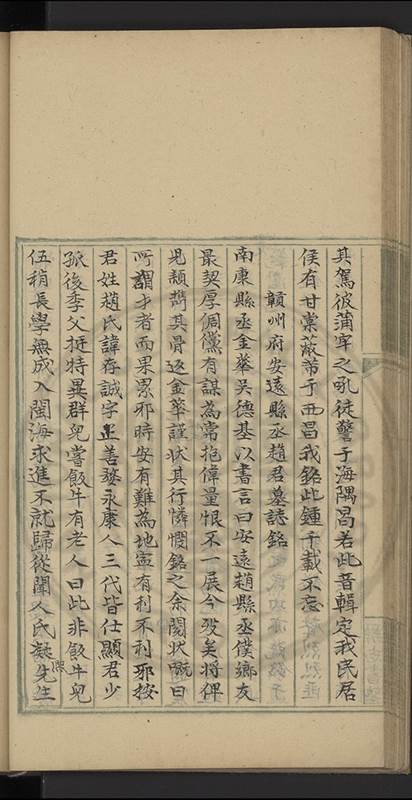 其駕彼蒲牢之吼徒警于海隅曷若此音輯定我民居
侯有甘棠蔽芾于西昌我銘此鍾千載不忘
贛州府安遠縣丞趙君墓誌銘
南康縣丞金華吳德基以書言曰安遠趙縣丞僕鄉友
最契厚倜儻有謀為常抱偉量恨不一展今歿矣將俾
兒頴齎其骨返金華謹狀其行憐憫銘之余閱状嘅曰
所謂才者而果累邪時安有難為地寧有利不利邪按
君姓趙氏諱存誠字正善婺永康人三代皆仕顯君少
孤後季父挺特異群兒嘗飯牛有老人曰此非飯牛兒
伍稍長學無成入閩海求進不就歸從聞人氏凝熙先生